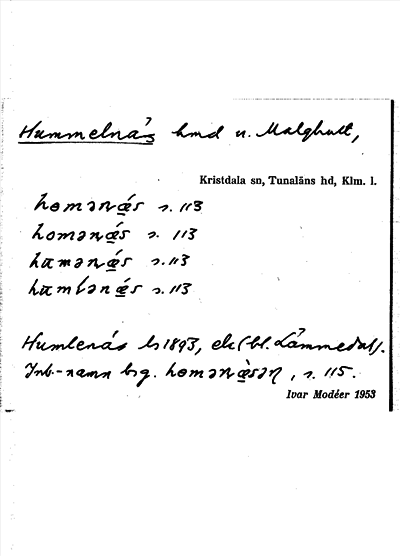 Hummelnäs hmd u. Malghult,
Kristdala sn, Tunaläns hd, Klm. l.
homənæ̀s s. 113
homənæ̀s s. 113
hamənæ̀s s. 113
hambənæ̀s s. 113
Humlenäs ls 1893, ek (bl. Lämmedal).
Inb.-namn bg. homənæ̀sən, s. 115.
Ivar Modéer 1953